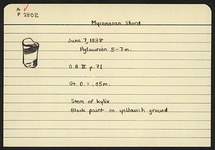 A
P 2802
Mycenaean Sherd
June 7, 1938
5-7 m.
O.G. II p. 71
Gr. D. = .05m.
Stem of kylix
Black paint on yellowish ground